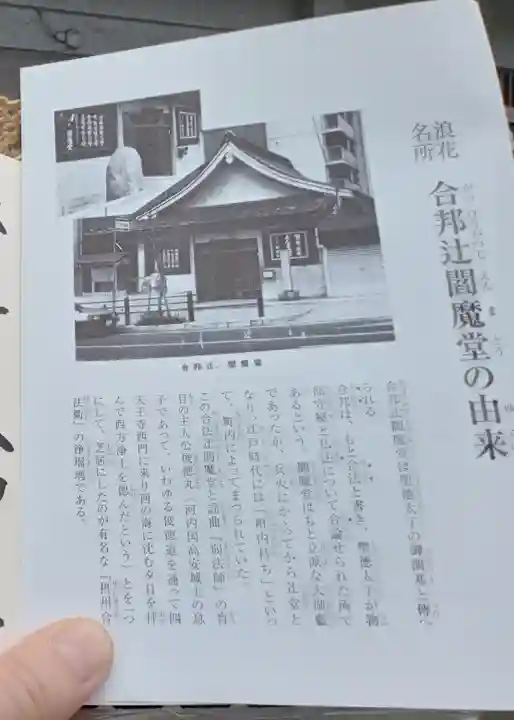 浪花
名所
合邦辻閻魔堂の由来
合邦辻閻魔堂は聖徳太子の御開基と傳へ
られる
合邦は、もと合法と書き、聖徳太子が物
部守屋と仏法について合論せられた所で
あるという。閻魔堂はもと立派な大伽藍
であったが、兵火にかかってから辻堂と
なり、江戸時代には「町内持ち」といっ
て、町内によってまつられていた。
この合法辻閻魔堂と謡曲「弱法師」の盲
目の主人公俊徳丸(河内国高安城主の息
子であって、いわゆる俊徳道を通って四
天王寺西門に来り西の海に沈む夕日を拝
んで西方浄土を偲んだという)とを一つ
にして、芝居にしたのが有名な「摂州合
法辻」の浄瑠璃である。
合邦辻、閻魔堂